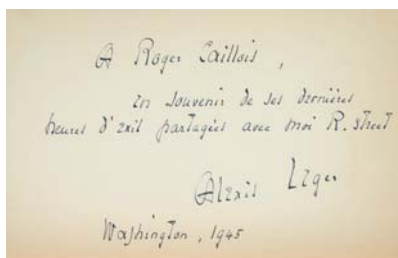 A Roger Caillois,
en souvenir de ses dernières
heures d'exil partagées avec moi R. street
Alexis Leger
Washington, 1945